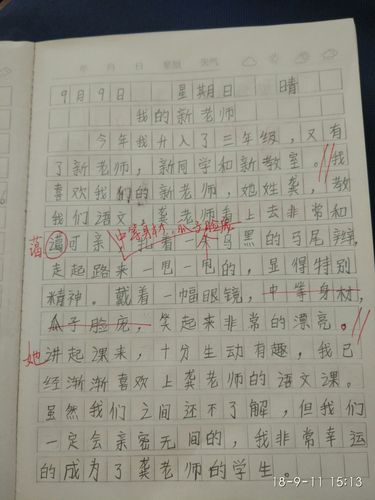 年 月 日 星期 天气
9月9日 星期日 晴
我的新老师
今年我升入了三年级，又有
了新老师，新同学和新教室。//我
喜欢我们的新老师，她姓龚，教
我们语文。龚老师看上去非常和
蔼可亲，中等身材，瓜子脸庞，着一个乌黑的马尾辫，
走起路来一甩一甩的，显得特别
精神。戴着一幅眼镜，中等身材，
瓜子脸庞，笑起来非常的漂亮。//
她讲起课来，十分生动有趣，我已
经渐渐喜欢上龚老师的语文课。
虽然我们之间还不了解，但我们
一定会亲密无间的，我非常幸运
的成为了龚老师的学生。
18-9-11 15:13